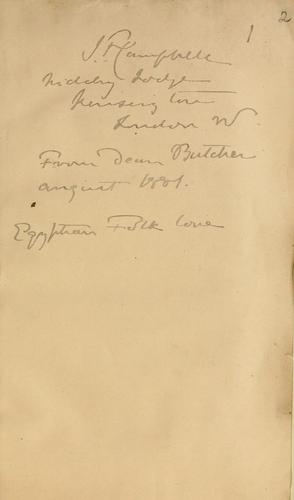 1 2
J. F. Campbell
Niddry Lodge
Kensington
London W.
From Dean Butcher
August 1881.
Egyptian Folk Lore